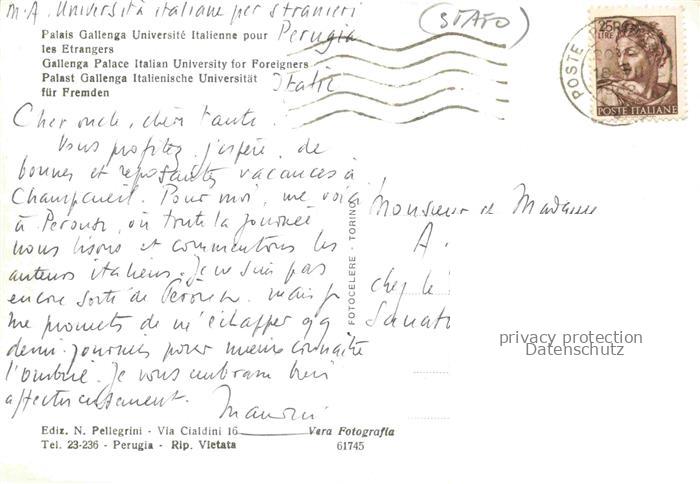 M.A. Università italiana per stranieri
Perugia
Italie
(STATO)
Palais Gallenga Université Italienne pour
les Etrangers
Gallenga Palace Italian University for Foreigners
Palast Gallenga Italienische Universität
für Fremden
25
LIRE
POSTE ITALIANE
POSTE
Cher oncle, chère tante.
Vous profitez, j'espère, de
bonnes et reposantes vacances à
Champcueil. Pour moi, me voici
à Pérouse, où toute la journée
nous lisons et commentons les
auteurs italiens. Je ne suis pas
encore sorti de Pérouse. mais je
me promets de m'échapper qq
demi-journées pour mieux connaître
l'Ombrie. Je vous embrasse bien
affectueusement.
Monsieur et Madame
A.
chez le
Sanat
FOTOCELERE - TORINO
privacy protection
Datenschutz
Ediz. N. Pellegrini - Via Cialdini 16
Tel. 23-236 - Perugia - Rip. Vietata
Vera Fotografia
61745